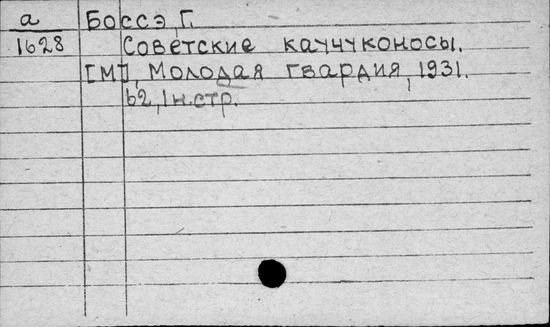 а Боссэ, Г.
1628 Советские каучуконосы.
[М], Молодая гвардия, 1931.
62, 1 н.стр.